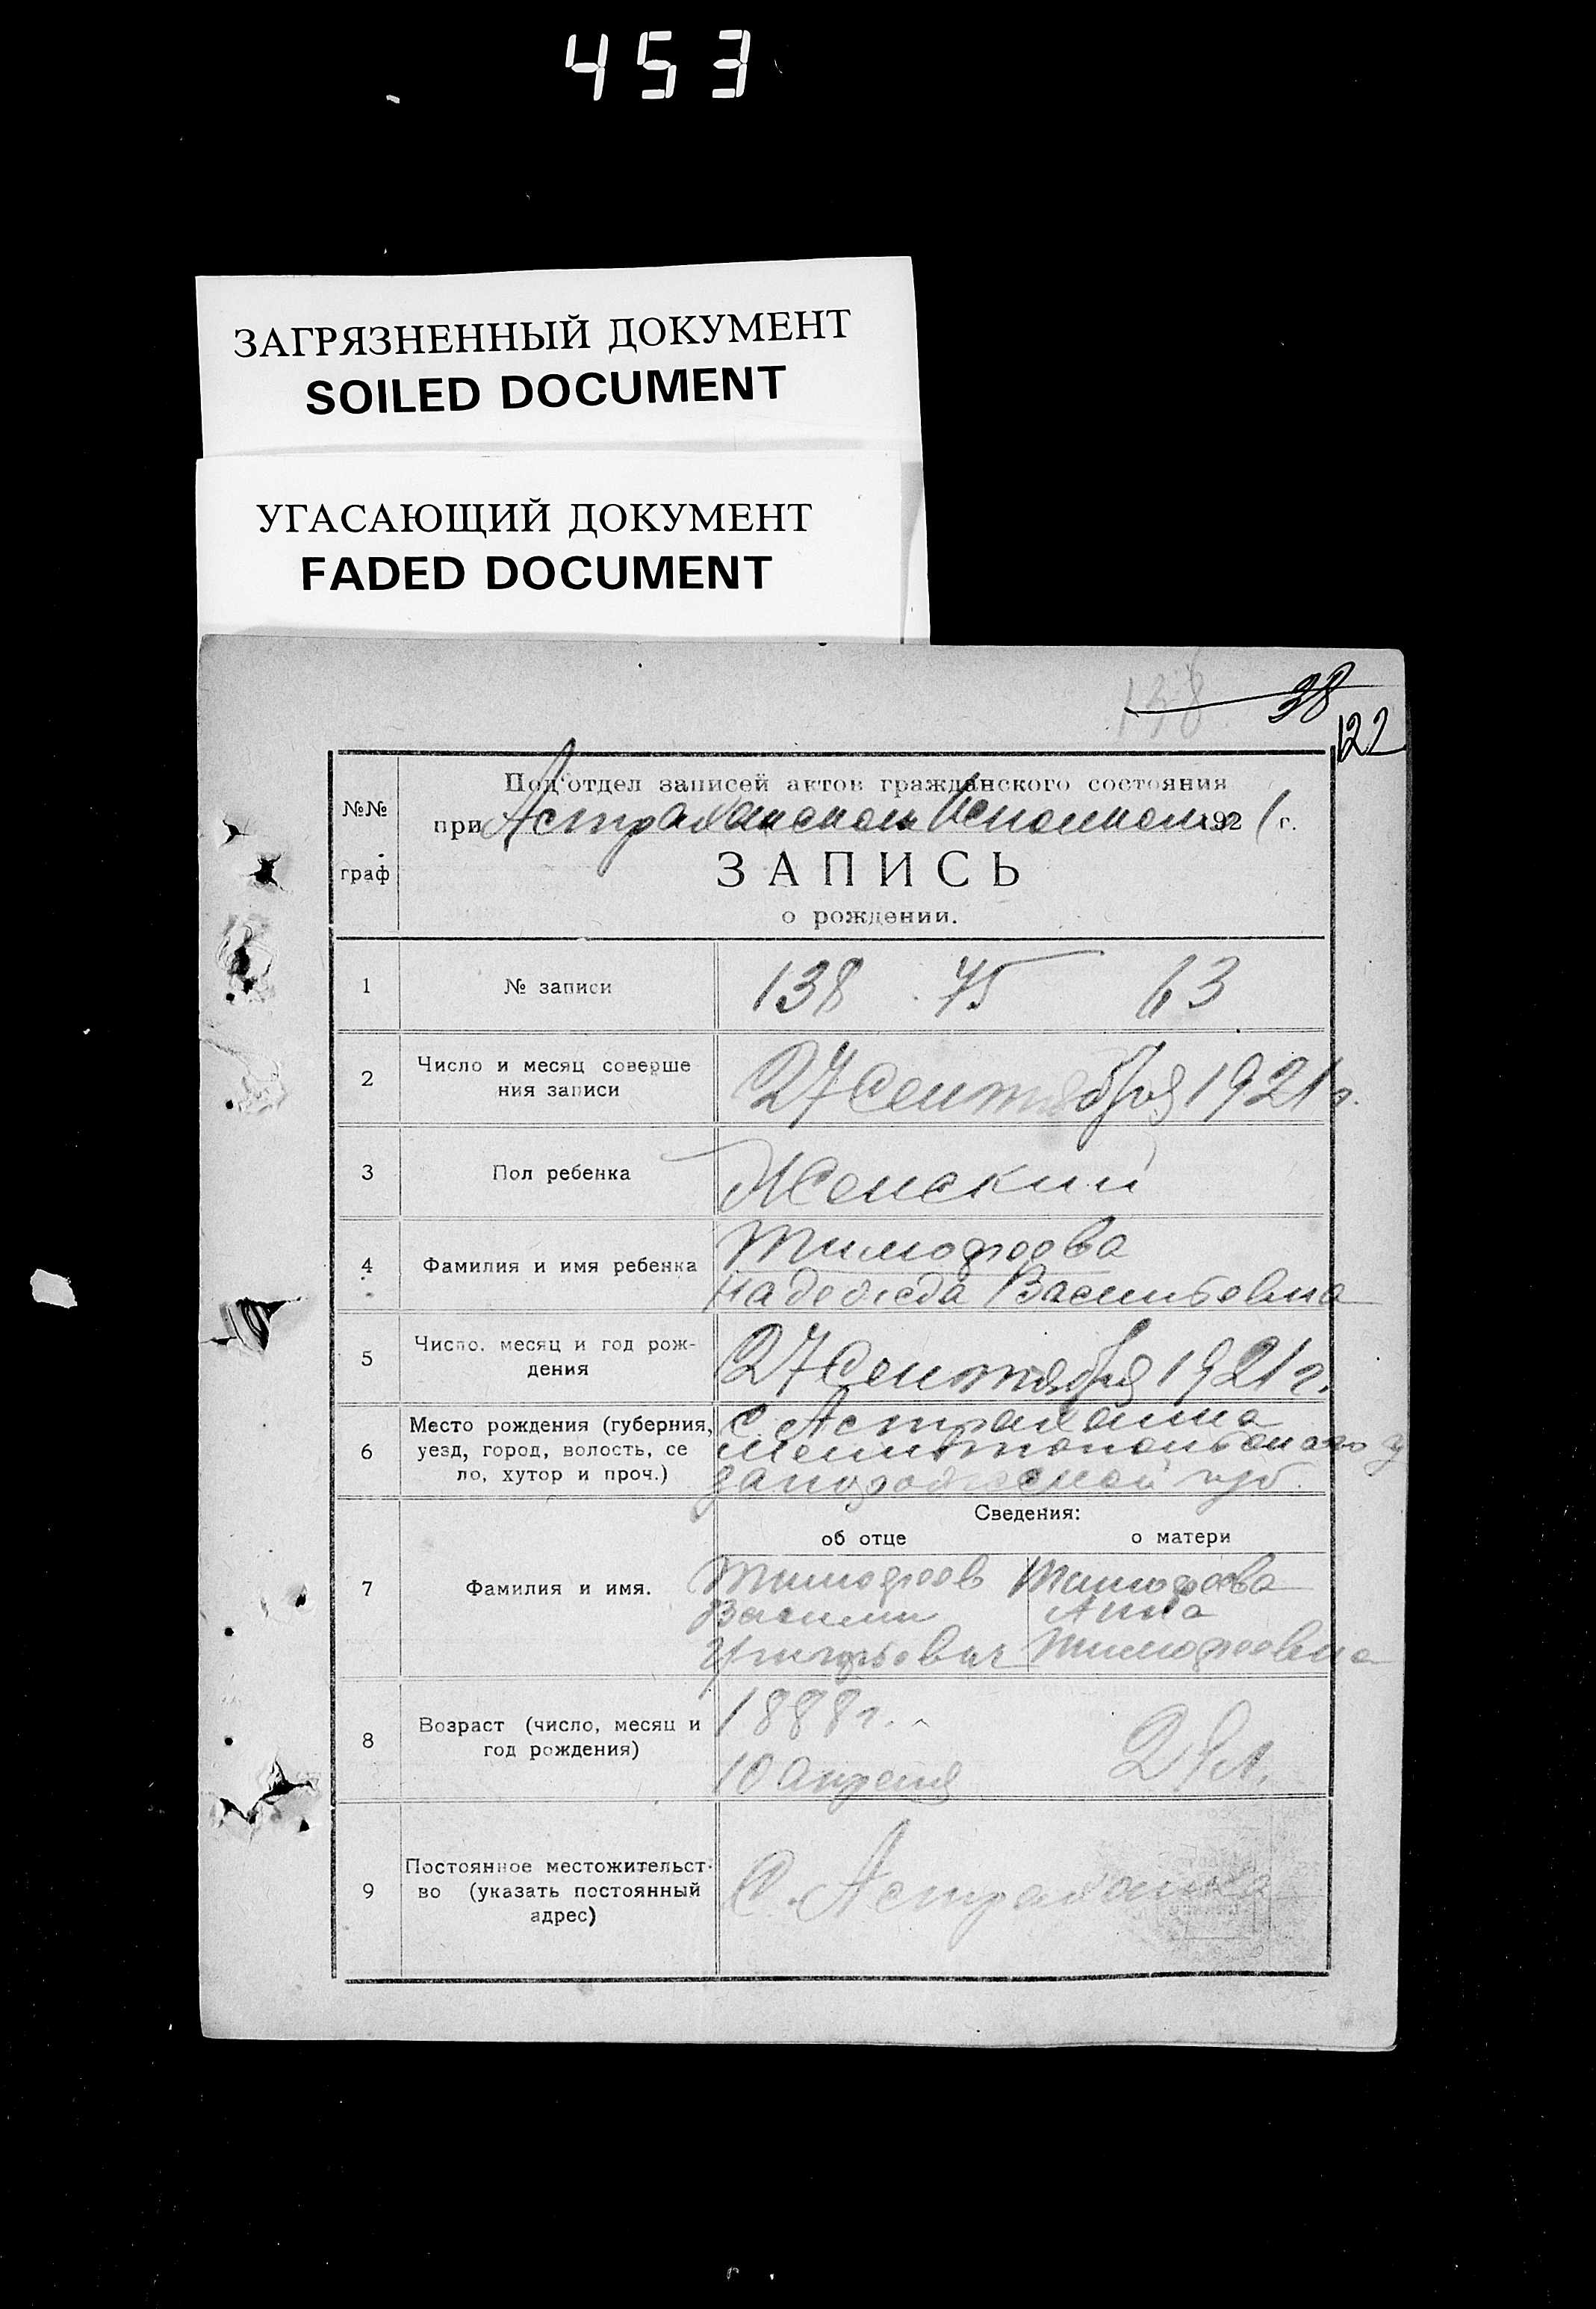 453
ЗАГРЯЗНЕННЫЙ ДОКУМЕНТ
SOILED DOCUMENT
УГАСАЮЩИЙ ДОКУМЕНТ
FADED DOCUMENT
138 38
122
№№ граф
Под'отдел записей актов гражданского состояния
при Астраханском Исполкоме 1921 г.
ЗАПИСЬ
о рождении.
1 № записи 138 75 63
2 Число и месяц соверше
ния записи
27 Сентября 1921 г.
3 Пол ребенка Женский
4 Фамилия и имя ребенка
Тимофеева
Надежда Васильевна
5 Число, месяц и год рож-
дения
27 Сентября 1921 г.
6 Место рождения (губерния,
уезд, город, волость, се
ло, хутор и проч.)
С. Астраханка
Мелитопольского у
Запорожской губ.
Сведения:
об отце о матери
7 Фамилия и имя.
Тимофеев Тимофеева
Василий Анна
Григорьевич Тимофеевна
8 Возраст (число, месяц и
год рождения)
1888 г.
10 Апреля
9 Постоянное местожительст-
во (указать постоянный
адрес)
С. Астраханка